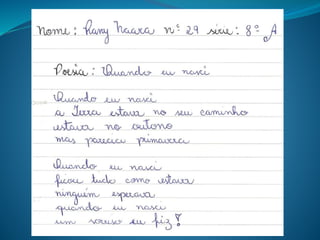 Nome: Rany Naara nº 29 série: 8ª A
Poesia: Quando eu nasci
Quando eu nasci
a Terra estava no seu caminho
estava no outono
mas parecia primavera
Quando eu nasci
ficou tudo como estava
ninguém esperava
quando eu nasci
um sorriso eu fiz!